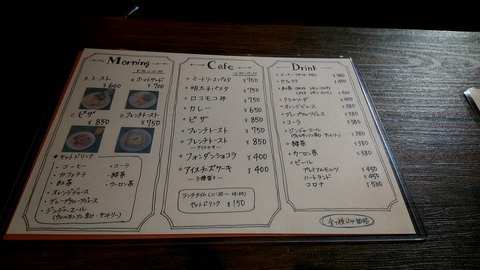 Morning
トースト
¥600
ホットサンド
¥700
ピザ
¥850
フレンチトースト
¥750
セットドリンク
・コーヒー
・カフェラテ
・紅茶
・オレンジジュース
・グレープフルーツジュース
・ジンジャーエール
・コーラ
・緑茶
・ウーロン茶
Cafe
ミートソースパスタ ¥750
明太子パスタ ¥750
ロコモコ丼 ¥750
カレー ¥650
ピザ ¥850
フレンチトースト ¥750
フレンチトースト ¥850
フォンダンショコラ ¥400
アイスチーズケーキ ¥400
ランチタイム (11:30 〜 14:00)
セットドリンク ¥150
Drink
コーヒー ¥380
カフェラテ ¥450
紅茶
オレンジジュース ¥380
グレープフルーツジュース ¥380
コーラ ¥380
ジンジャエール ¥380
緑茶 ¥380
ウーロン茶 ¥380
ビール
プレミアムモルツ ¥450
ハートランド ¥450
コロナ ¥500